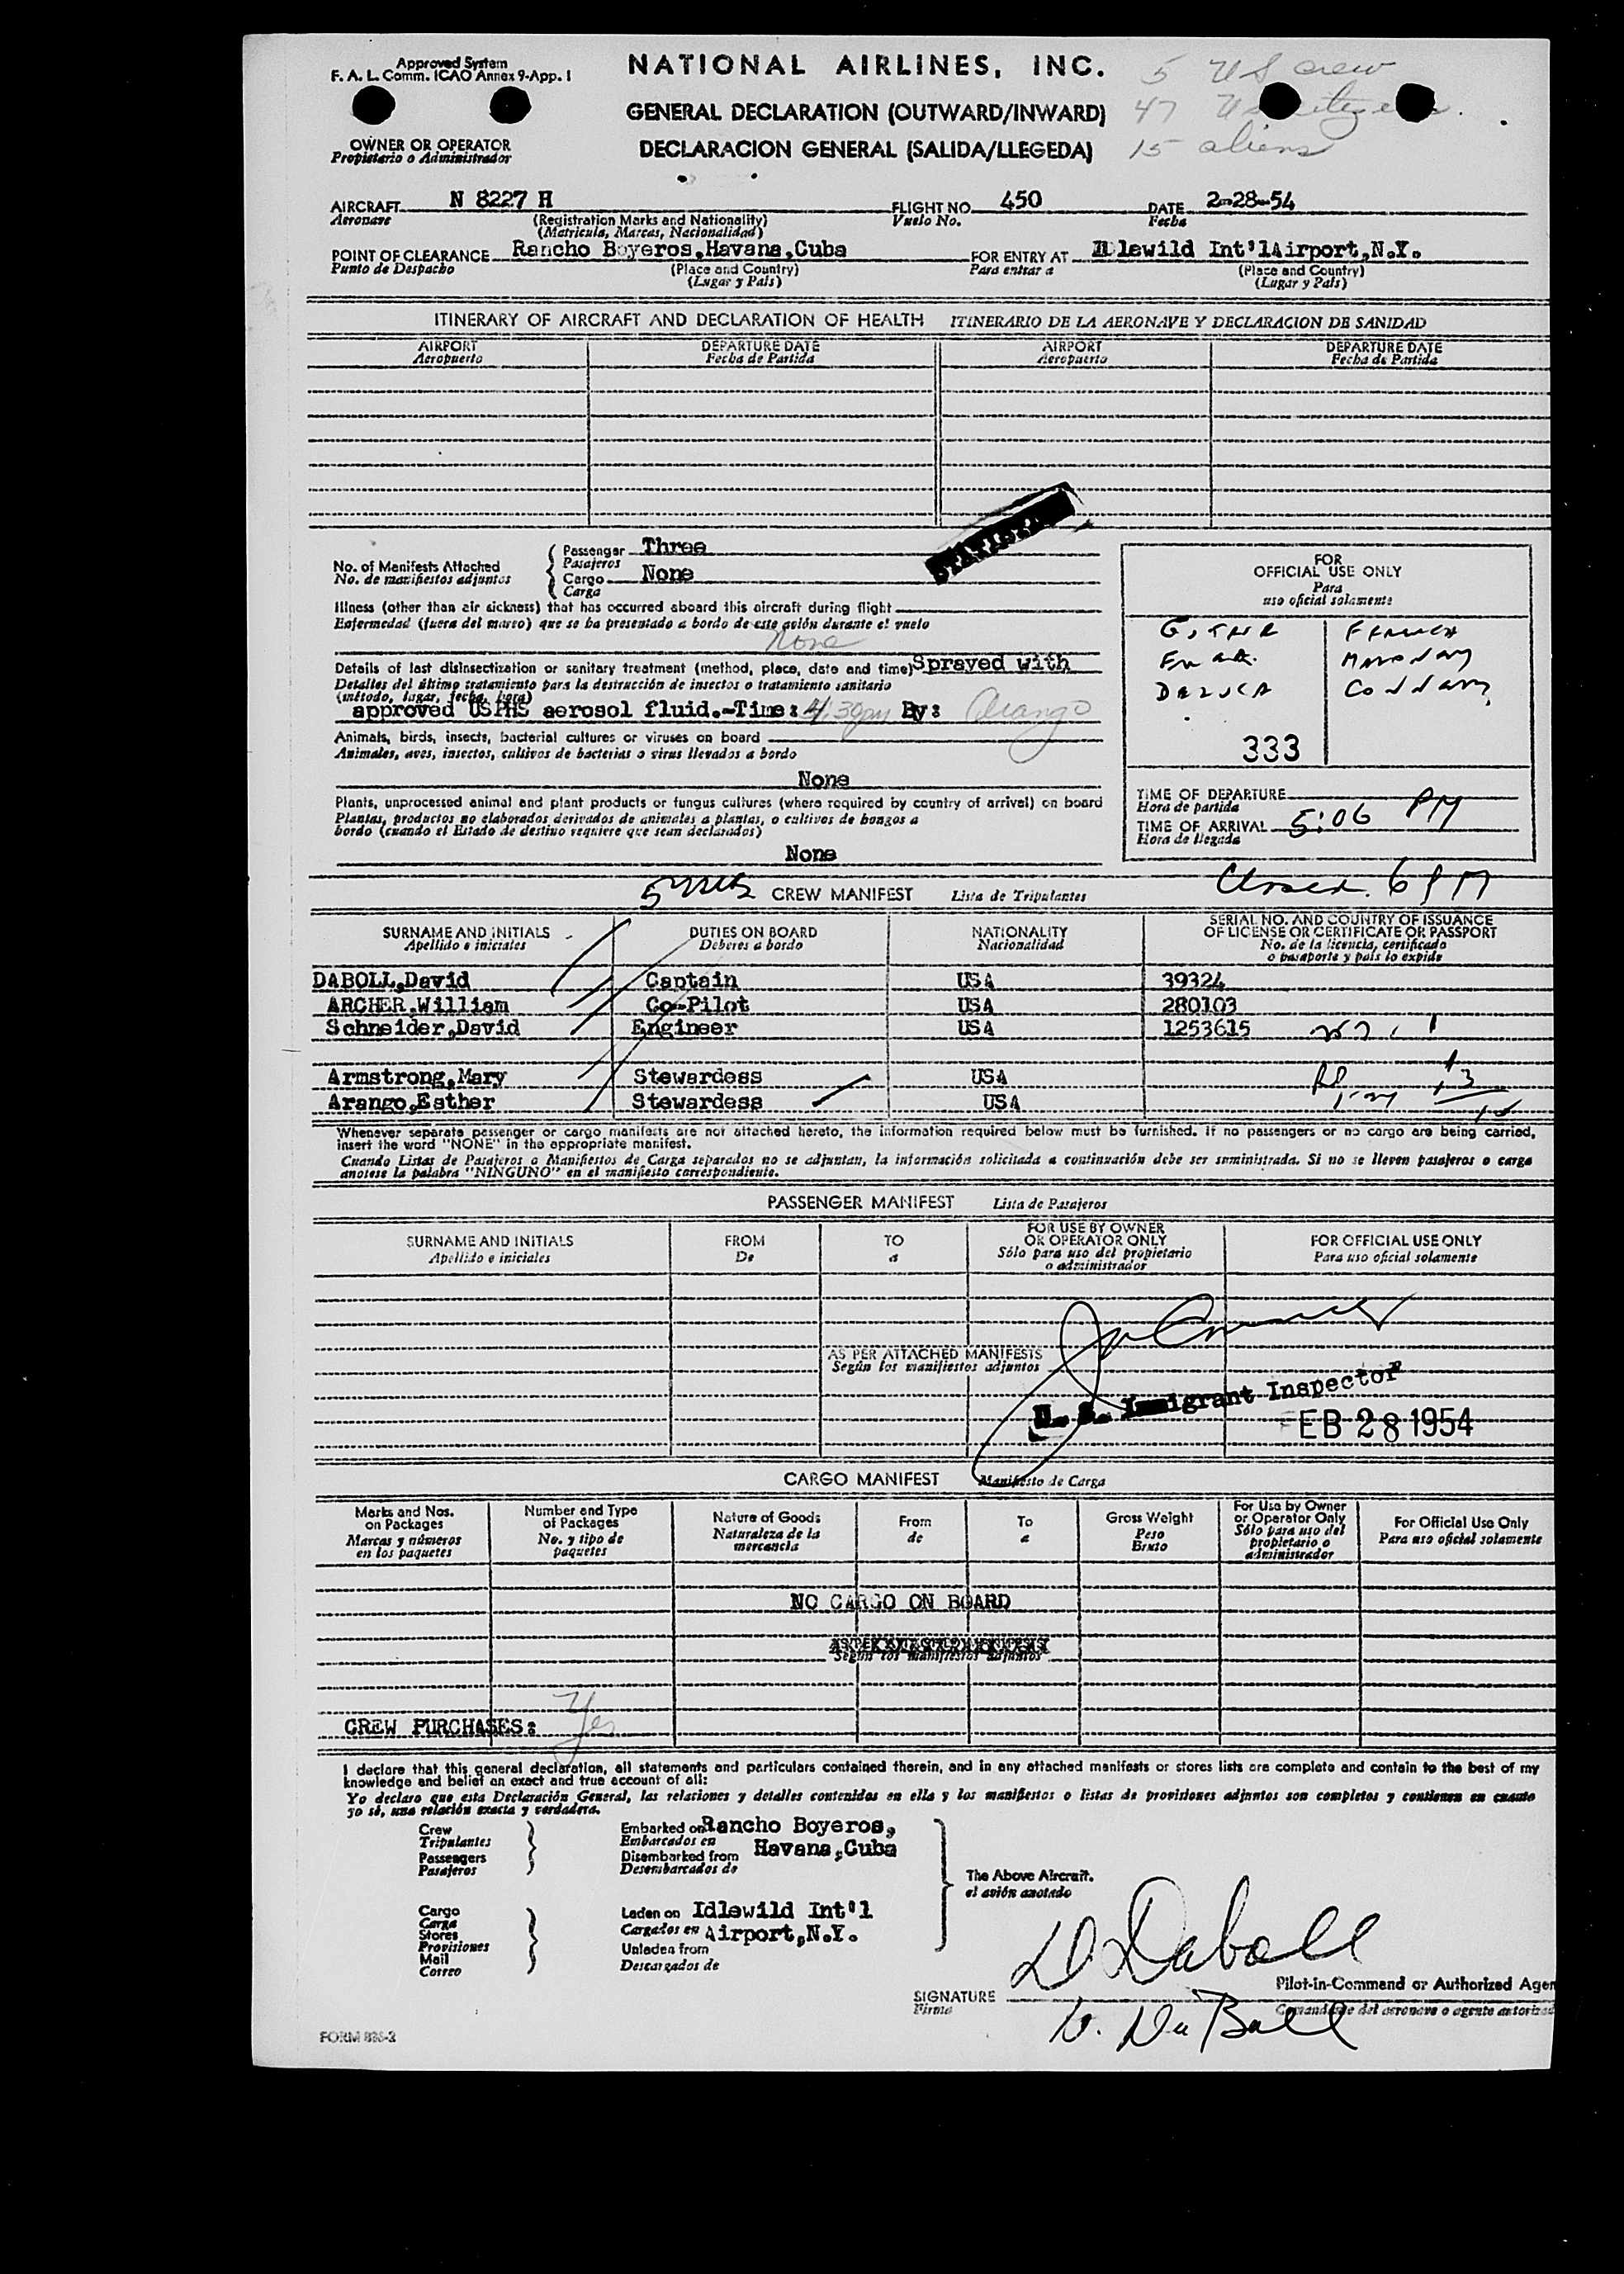 Approved System
F. A. L. Comm. ICAO Annex 9-App. 1
NATIONAL AIRLINES, INC.
5 US crew
GENERAL DECLARATION (OUTWARD/INWARD)
47 US
DECLARACION GENERAL (SALIDA/LLEGEDA)
15 aliens
OWNER OR OPERATOR
Propietario o Administrador
AIRCRAFT N 8227 H FLIGHT NO. 450 DATE 2-28-54
Aeronave (Registration Marks and Nationality) Vuelo No. Fecha
(Matricula, Marcas, Nacionalidad)
POINT OF CLEARANCE Rancho Boyeros,Havana,Cuba FOR ENTRY AT Idlewild Int'lAirport,N.Y.
Punto de Despacho (Place and Country) Para entrar a (Place and Country)
(Lugar y Pais) (Lugar y Pais)
ITINERARY OF AIRCRAFT AND DECLARATION OF HEALTH ITINERARIO DE LA AERONAVE Y DECLARACION DE SANIDAD
AIRPORT DEPARTURE DATE AIRPORT DEPARTURE DATE
Aeropuerto Fecha de Partida Aeropuerto Fecha de Partida
No. of Manifests Attached
No. de manifiestos adjuntos
Passenger Three
Pasajeros
Cargo None
Carga
Illness (other than air sickness) that has occurred aboard this aircraft during flight
Enfermedad (fuera del mareo) que se ha presentado a bordo de este avión durante el vuelo
None
Details of last disinsectization or sanitary treatment (method, place, date and time) Sprayed with
Detalles del último tratamiento para la destrucción de insectos o tratamiento sanitario
(método, lugar, fecha, hora)
approved USPHS aerosol fluid.-Time: 4:30pm By: Arango
Animals, birds, insects, bacterial cultures or viruses on board
Animales, aves, insectos, cultivos de bacterias o virus llevados a bordo
None
Plants, unprocessed animal and plant products or fungus cultures (where required by country of arrival) on board
Plantas, productos no elaborados derivados de animales a plantas, o cultivos de hongos a
bordo (cuando el Estado de destino requiere que sean declarados)
None
FOR
OFFICIAL USE ONLY
Para
uso oficial solamente
333
TIME OF DEPARTURE
Hora de partida
TIME OF ARRIVAL 5:06 PM
Hora de llegada
6 PM
5 CREW MANIFEST Lista de Tripulantes
SURNAME AND INITIALS DUTIES ON BOARD NATIONALITY SERIAL NO. AND COUNTRY OF ISSUANCE
Apellido e iniciales Deberes a bordo Nacionalidad OF LICENSE OR CERTIFICATE OR PASSPORT
No. de la licencia, certificado
o pasaporte y pais lo expide
DABOLL,David Captain USA 39324
ARCHER,William Co-Pilot USA 280103
Schneider,David Engineer USA 1253615
Armstrong,Mary Stewardess USA
Arango,Esther Stewardess USA
Whenever separate passenger or cargo manifests are not attached hereto, the information required below must be furnished. If no passengers or no cargo are being carried,
insert the word "NONE" in the appropriate manifest.
Cuando Listas de Pasajeros o Manifiestos de Carga separados no se adjuntan, la información solicitada a continuación debe ser suministrada. Si no se lleven pasajeros o carga
anotese la palabra "NINGUNO" en el manifiesto correspondiente.
PASSENGER MANIFEST Lista de Pasajeros
SURNAME AND INITIALS FROM TO FOR USE BY OWNER FOR OFFICIAL USE ONLY
Apellido e iniciales De a OR OPERATOR ONLY Para uso oficial solamente
Sólo para uso del propietario
o administrador
AS PER ATTACHED MANIFESTS
Según los manifiestos adjuntos
U. S. Immigrant Inspector
FEB 28 1954
CARGO MANIFEST Manifiesto de Carga
Marks and Nos. on Packages Number and Type of Packages Nature of Goods From To Gross Weight For Use by Owner or Operator Only For Official Use Only
Marcas y números en los paquetes No. y tipo de paquetes Naturaleza de la mercancia de a Peso Bruto Sólo para uso del propietario o administrador Para uso oficial solamente
NO CARGO ON BOARD
Según los manifiestos adjuntos
CREW PURCHASES: Yes
I declare that this general declaration, all statements and particulars contained therein, and in any attached manifests or stores lists are complete and contain to the best of my
knowledge and belief an exact and true account of all:
Yo declaro que esta Declaración General, las relaciones y detalles contenidos en ella y los manifiestos o listas de provisiones adjuntos son completos y contienen en cuanto
yo sé, una relación exacta y verdadera.
Crew Embarked on Rancho Boyeros,
Tripulantes Embarcados en
Passengers Disembarked from Havana,Cuba
Pasajeros Desembarcados de
The Above Aircraft.
el avión anotado
Cargo Laden on Idlewild Int'l
Carga
Stores Cargados en Airport,N.Y.
Provisiones
Mail Unladen from
Correo Descargados de
D Daboll
Pilot-in-Command or Authorized Agen
SIGNATURE
Firma Comandante del aeronave o agente autorizad
D. DaBoll
FORM 836-2